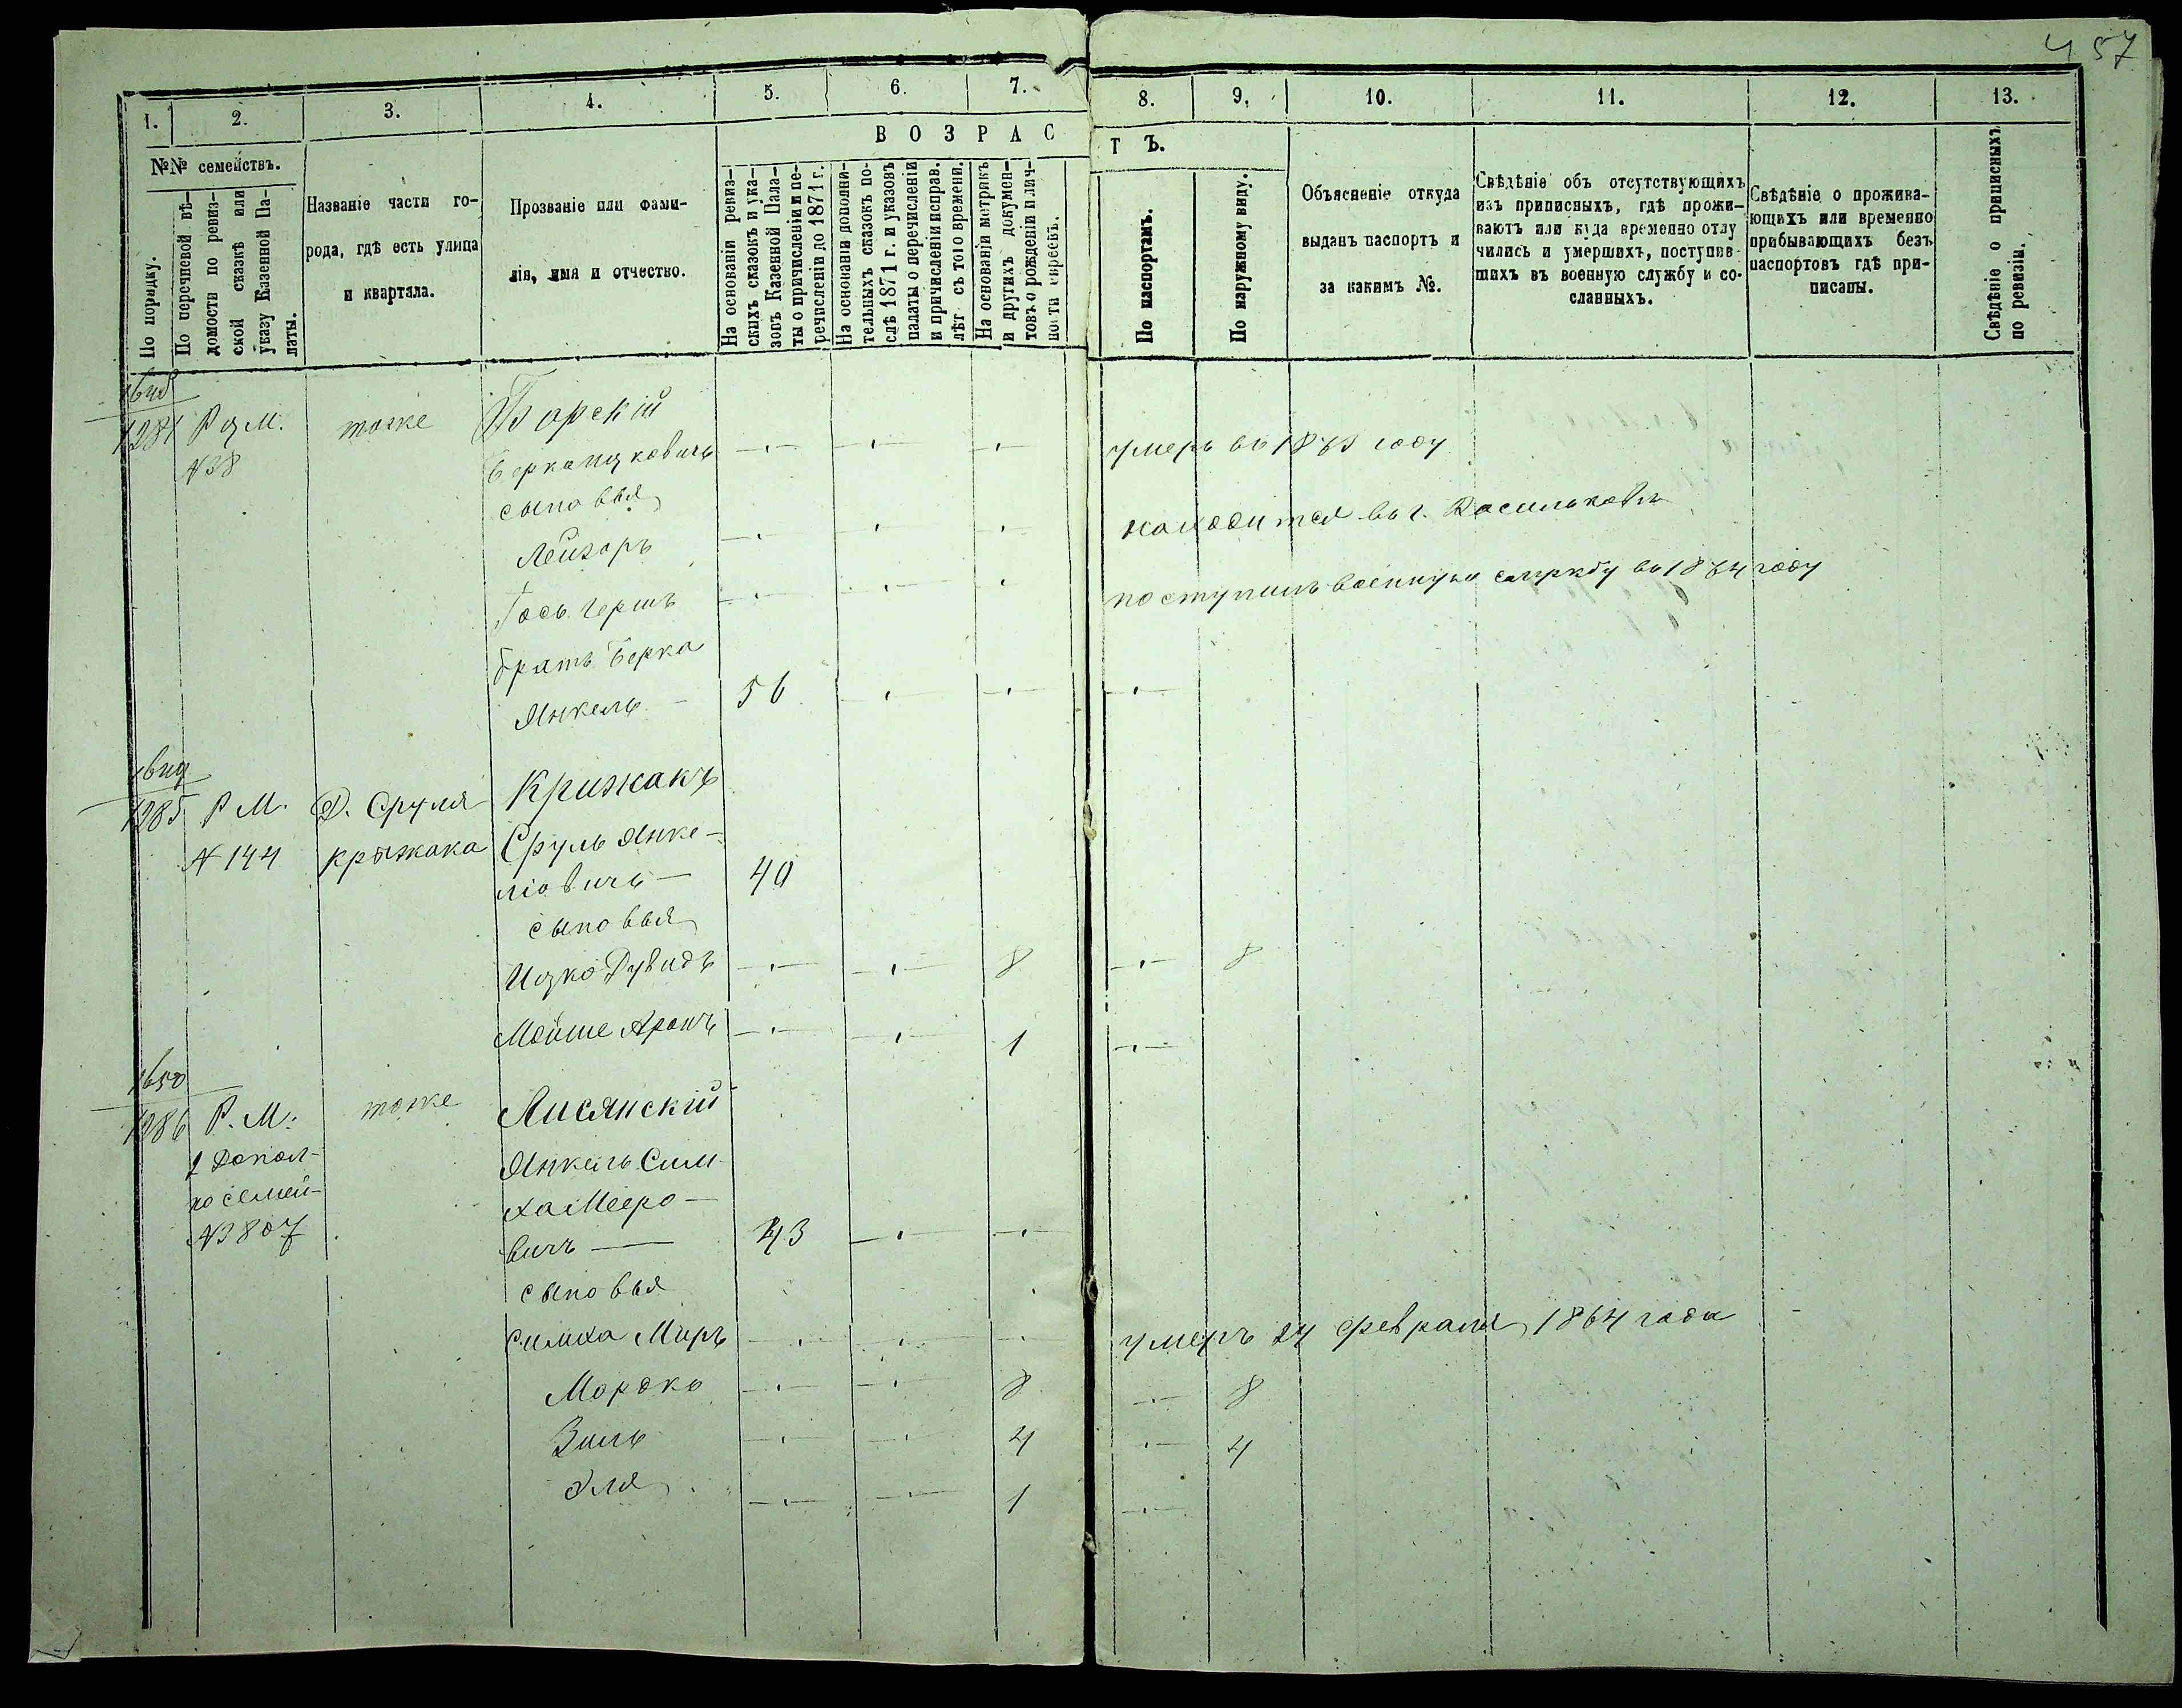 457
1.
2.
3.
4.
5.
6.
7.
8.
9.
10.
11.
12.
13.
№№ семействъ.
По порядку.
По перечневой вѣ-
домости по ревиз-
ской сказкѣ или
указу Казенной Па-
латы.
Названіе части го-
рода, гдѣ есть улица
и квартала.
Прозваніе или фами-
лія, имя и отчество.
ВОЗРАС
ТЪ.
На основаніи ревиз-
скихъ сказокъ и ука-
зовъ Казенной Пала-
ты о причисленіи и пе-
речисленіи до 1871 г.
На основаніи дополни-
тельныхъ сказокъ по-
слѣ 1871 г. и указовъ
палаты о перечисленіи
и причисленіи исправ.
лѣт съ того времени.
На основаніи метрикъ
и другихъ докумен-
товъ о рожденіи и лич-
ности евреевъ.
По паспортамъ.
По наружному виду.
Объясненіе откуда
выданъ паспортъ и
за какимъ №.
Свѣдѣніе объ отсутствующихъ
изъ приписныхъ, гдѣ прожи-
ваютъ или куда временно отлу
чились и умершихъ, поступив
шихъ въ военную службу и со-
сланныхъ.
Свѣдѣніе о прожива-
ющихъ или временно
прибывающихъ безъ
паспортовъ гдѣ при-
писаны.
Свѣдѣніе о приписныхъ
по ревизіи.
1648
1284 тоже Борскій
№38 умеръ въ году
сыновья
Лейзоръ находится въ г. Васильковѣ
Іось Гершъ поступилъ военную службу въ 1874 году
братъ Берка
Янкель - 56
1649
1285 Р М. Д. Сруля Крижакъ
№ 144 Крыжака Сруль Янке-
ліовичъ - 40
сыновья
Ицко Дувидъ 8 8
Мойше Аронъ 1
1650
1286 Р. М. тоже Лисянскій
1 Допол- Янкель Сим
по семей- ха Мееро-
№3807 вичъ - 43
сыновья
Симха Меръ умеръ 24 февраля 1864 года
Мордко 8 8
Зиль 4 4
Эля 1